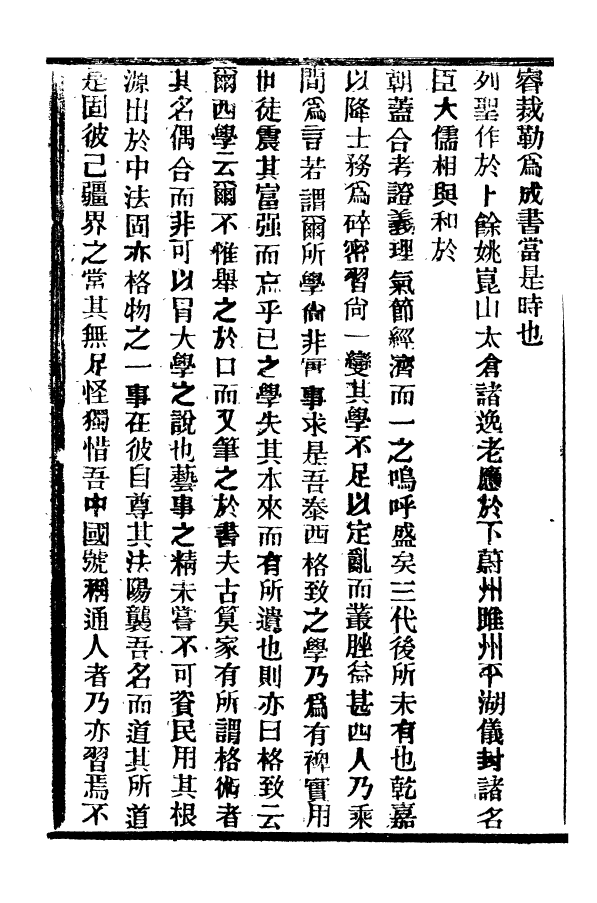 睿裁勒爲成書當是時也
列聖作於上餘姚崑山太倉諸逸老應於下蔚州睢州平湖儀封諸名
臣大儒相與和於
朝蓋合考證義理氣節經濟而一之嗚呼盛矣三代後所未有也乾嘉
以降士務爲碎密習尙一變其學不足以定亂而叢脞益甚西人乃乘
間爲言若謂爾所學尙非實事求是吾泰西格致之學乃爲有裨實用
世徒震其富强而忘乎已之學失其本來而有所遺也則亦曰格致云
爾西學云爾不惟舉之於口而又筆之於書夫古算家有所謂格術者
其名偶合而非可以冒大學之說也藝事之精未嘗不可資民用其根
源出於中法固亦格物之一事在彼自尊其法陽襲吾名而道其所道
是固彼己疆界之常其無足怪獨惜吾中國號稱通人者乃亦習焉不